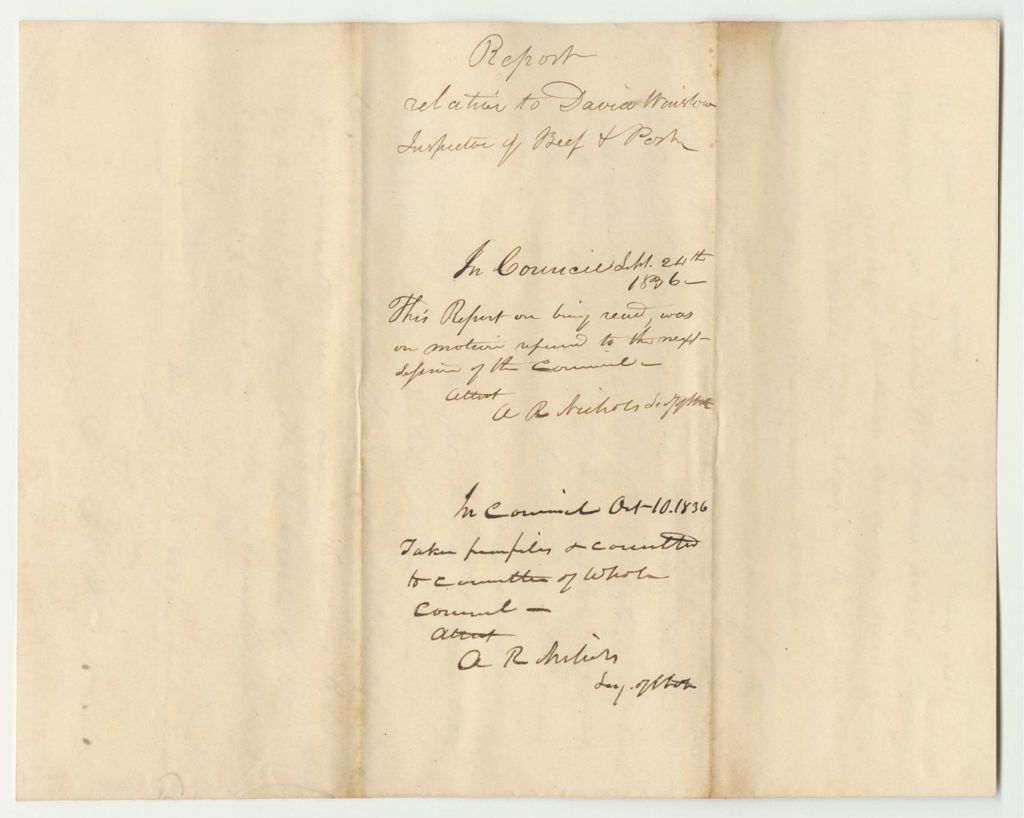 Report
relative to David Winslow
Inspector of Beef & Pork
In Council Sept. 24th
1836 —
This Report on being read, was
on motion referred to the next
session of the Council —
Attest
A R Nichols Secy of State
In Council Oct 10. 1836
Taken from files & committed
to Committee of Whole
Council —
Attest
A R Nichols
Secy. of State